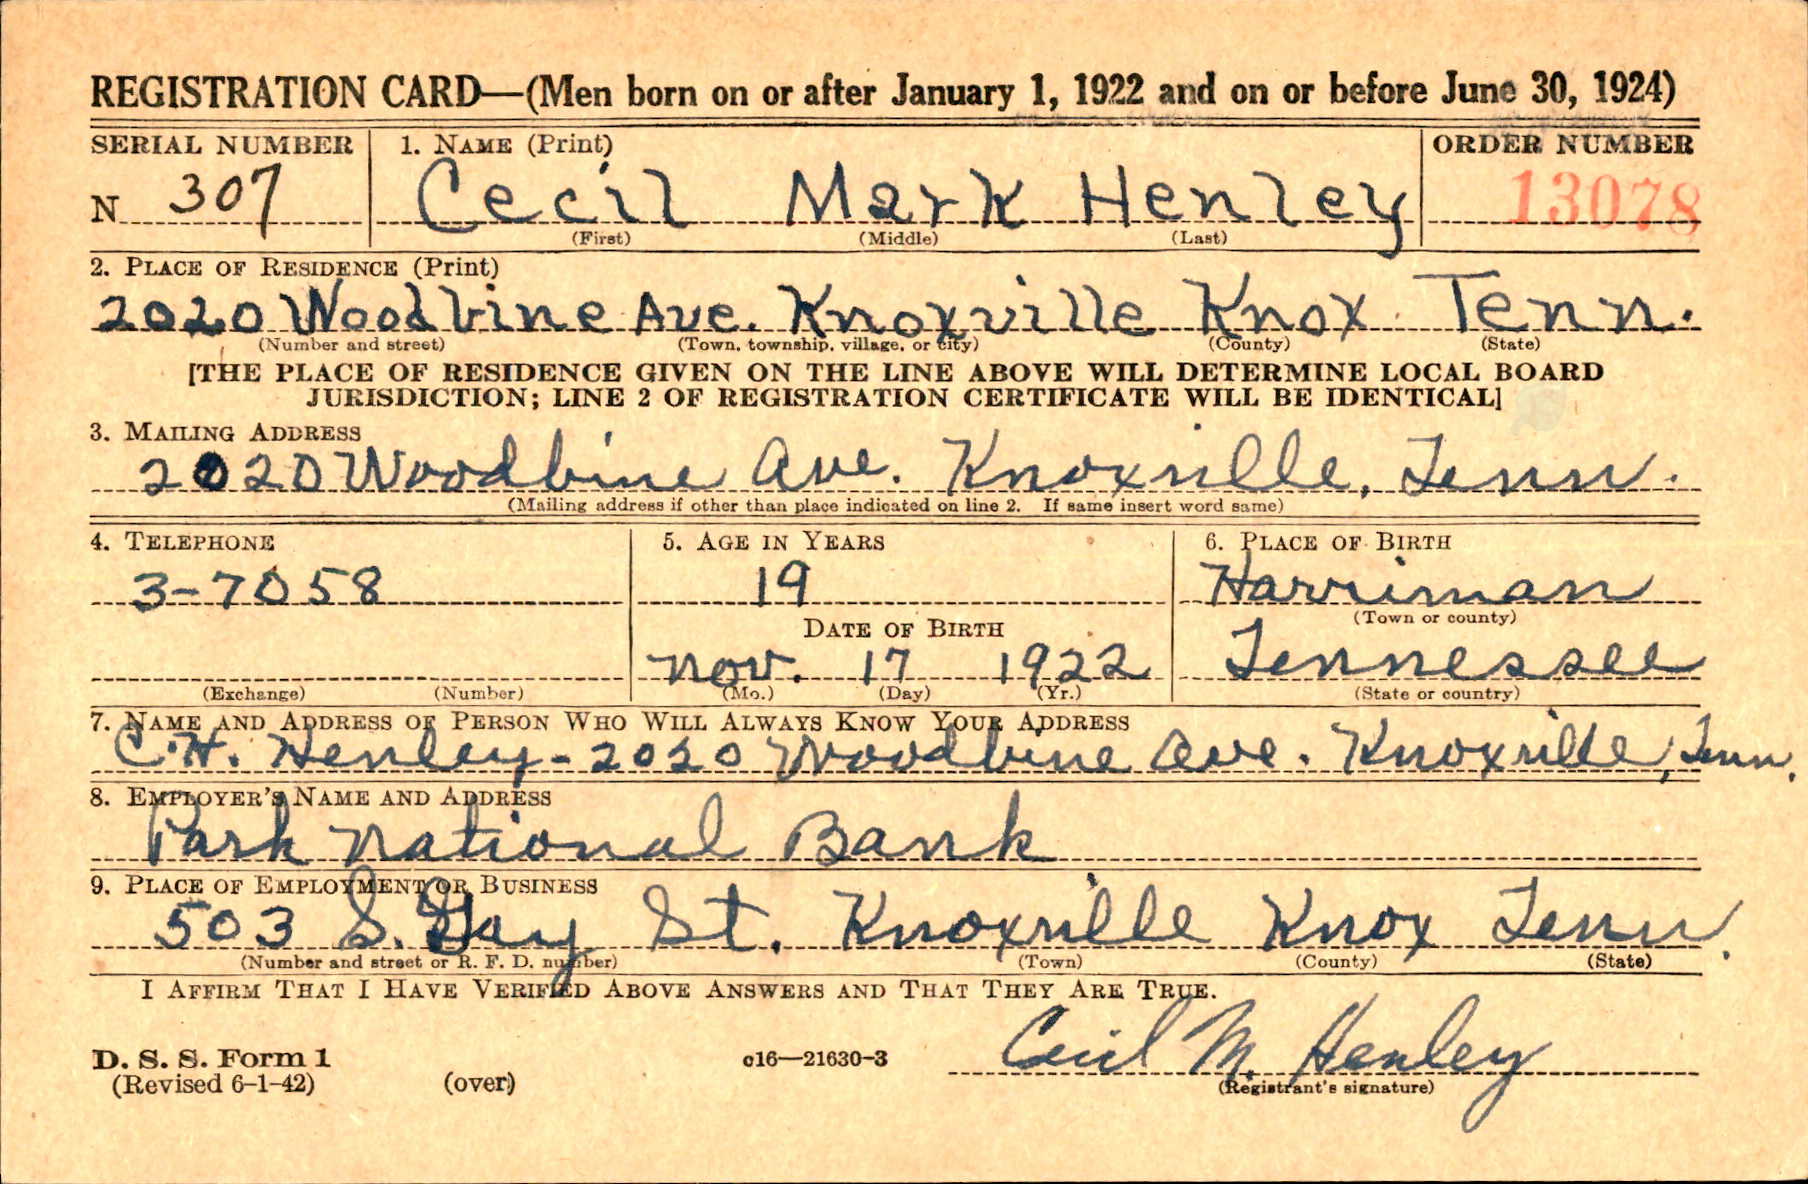 REGISTRATION CARD—(Men born on or after January 1, 1922 and on or before June 30, 1924)
SERIAL NUMBER 1. NAME (Print) ORDER NUMBER
N 307 Cecil Mark Henley 13078
(First) (Middle) (Last)
2. PLACE OF RESIDENCE (Print)
2020 Woodbine Ave. Knoxville Knox Tenn.
(Number and street) (Town, township, village, or city) (County) (State)
[THE PLACE OF RESIDENCE GIVEN ON THE LINE ABOVE WILL DETERMINE LOCAL BOARD
JURISDICTION; LINE 2 OF REGISTRATION CERTIFICATE WILL BE IDENTICAL]
3. MAILING ADDRESS
2020 Woodbine Ave. Knoxville, Tenn.
(Mailing address if other than place indicated on line 2. If same insert word same)
4. TELEPHONE 5. AGE IN YEARS 6. PLACE OF BIRTH
3-7058 19 Harriman
(Town or county)
DATE OF BIRTH
Nov. 17 1922 Tennessee
(Exchange) (Number) (Mo.) (Day) (Yr.) (State or country)
7. NAME AND ADDRESS OF PERSON WHO WILL ALWAYS KNOW YOUR ADDRESS
C.H. Henley - 2020 Woodbine Ave. Knoxville, Tenn.
8. EMPLOYER'S NAME AND ADDRESS
Park National Bank
9. PLACE OF EMPLOYMENT OR BUSINESS
503 S. Gay St. Knoxville Knox Tenn.
(Number and street or R. F. D. number) (Town) (County) (State)
I AFFIRM THAT I HAVE VERIFIED ABOVE ANSWERS AND THAT THEY ARE TRUE.
D. S. S. Form 1 c16—21630-3 Cecil M. Henley
(Revised 6-1-42) (over) (Registrant's signature)